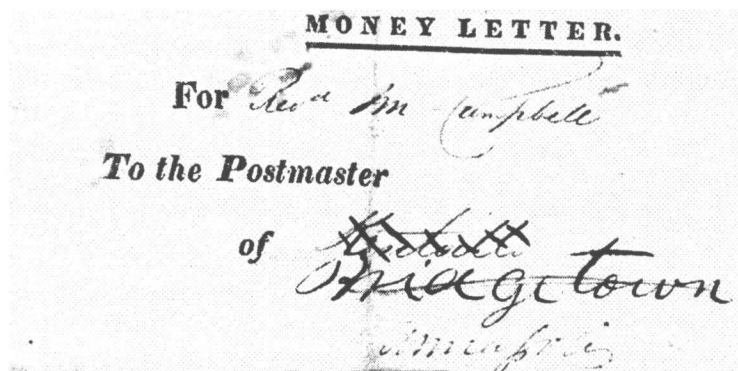 MONEY LETTER.
For Revd Mr Campbell
To the Postmaster
of
Bridgetown
Annapolis